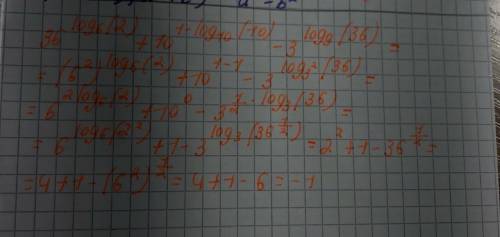 36^{log_6(2)} + 10^{1-log_{10}(10)} - 3^{log_9(36)} =
= (6^2)^{log_6(2)} + 10^{1-1} - 3^{log_{3^2}(36)} =
= 6^{2log_6(2)} + 10^0 - 3^{\frac{1}{2} \cdot log_3(36)} =
= 6^{log_6(2^2)} + 1 - 3^{log_3(36^{\frac{1}{2}})} = 2^2 + 1 - 36^{\frac{1}{2}} =
= 4 + 1 - (6^2)^{\frac{1}{2}} = 4 + 1 - 6 = -1